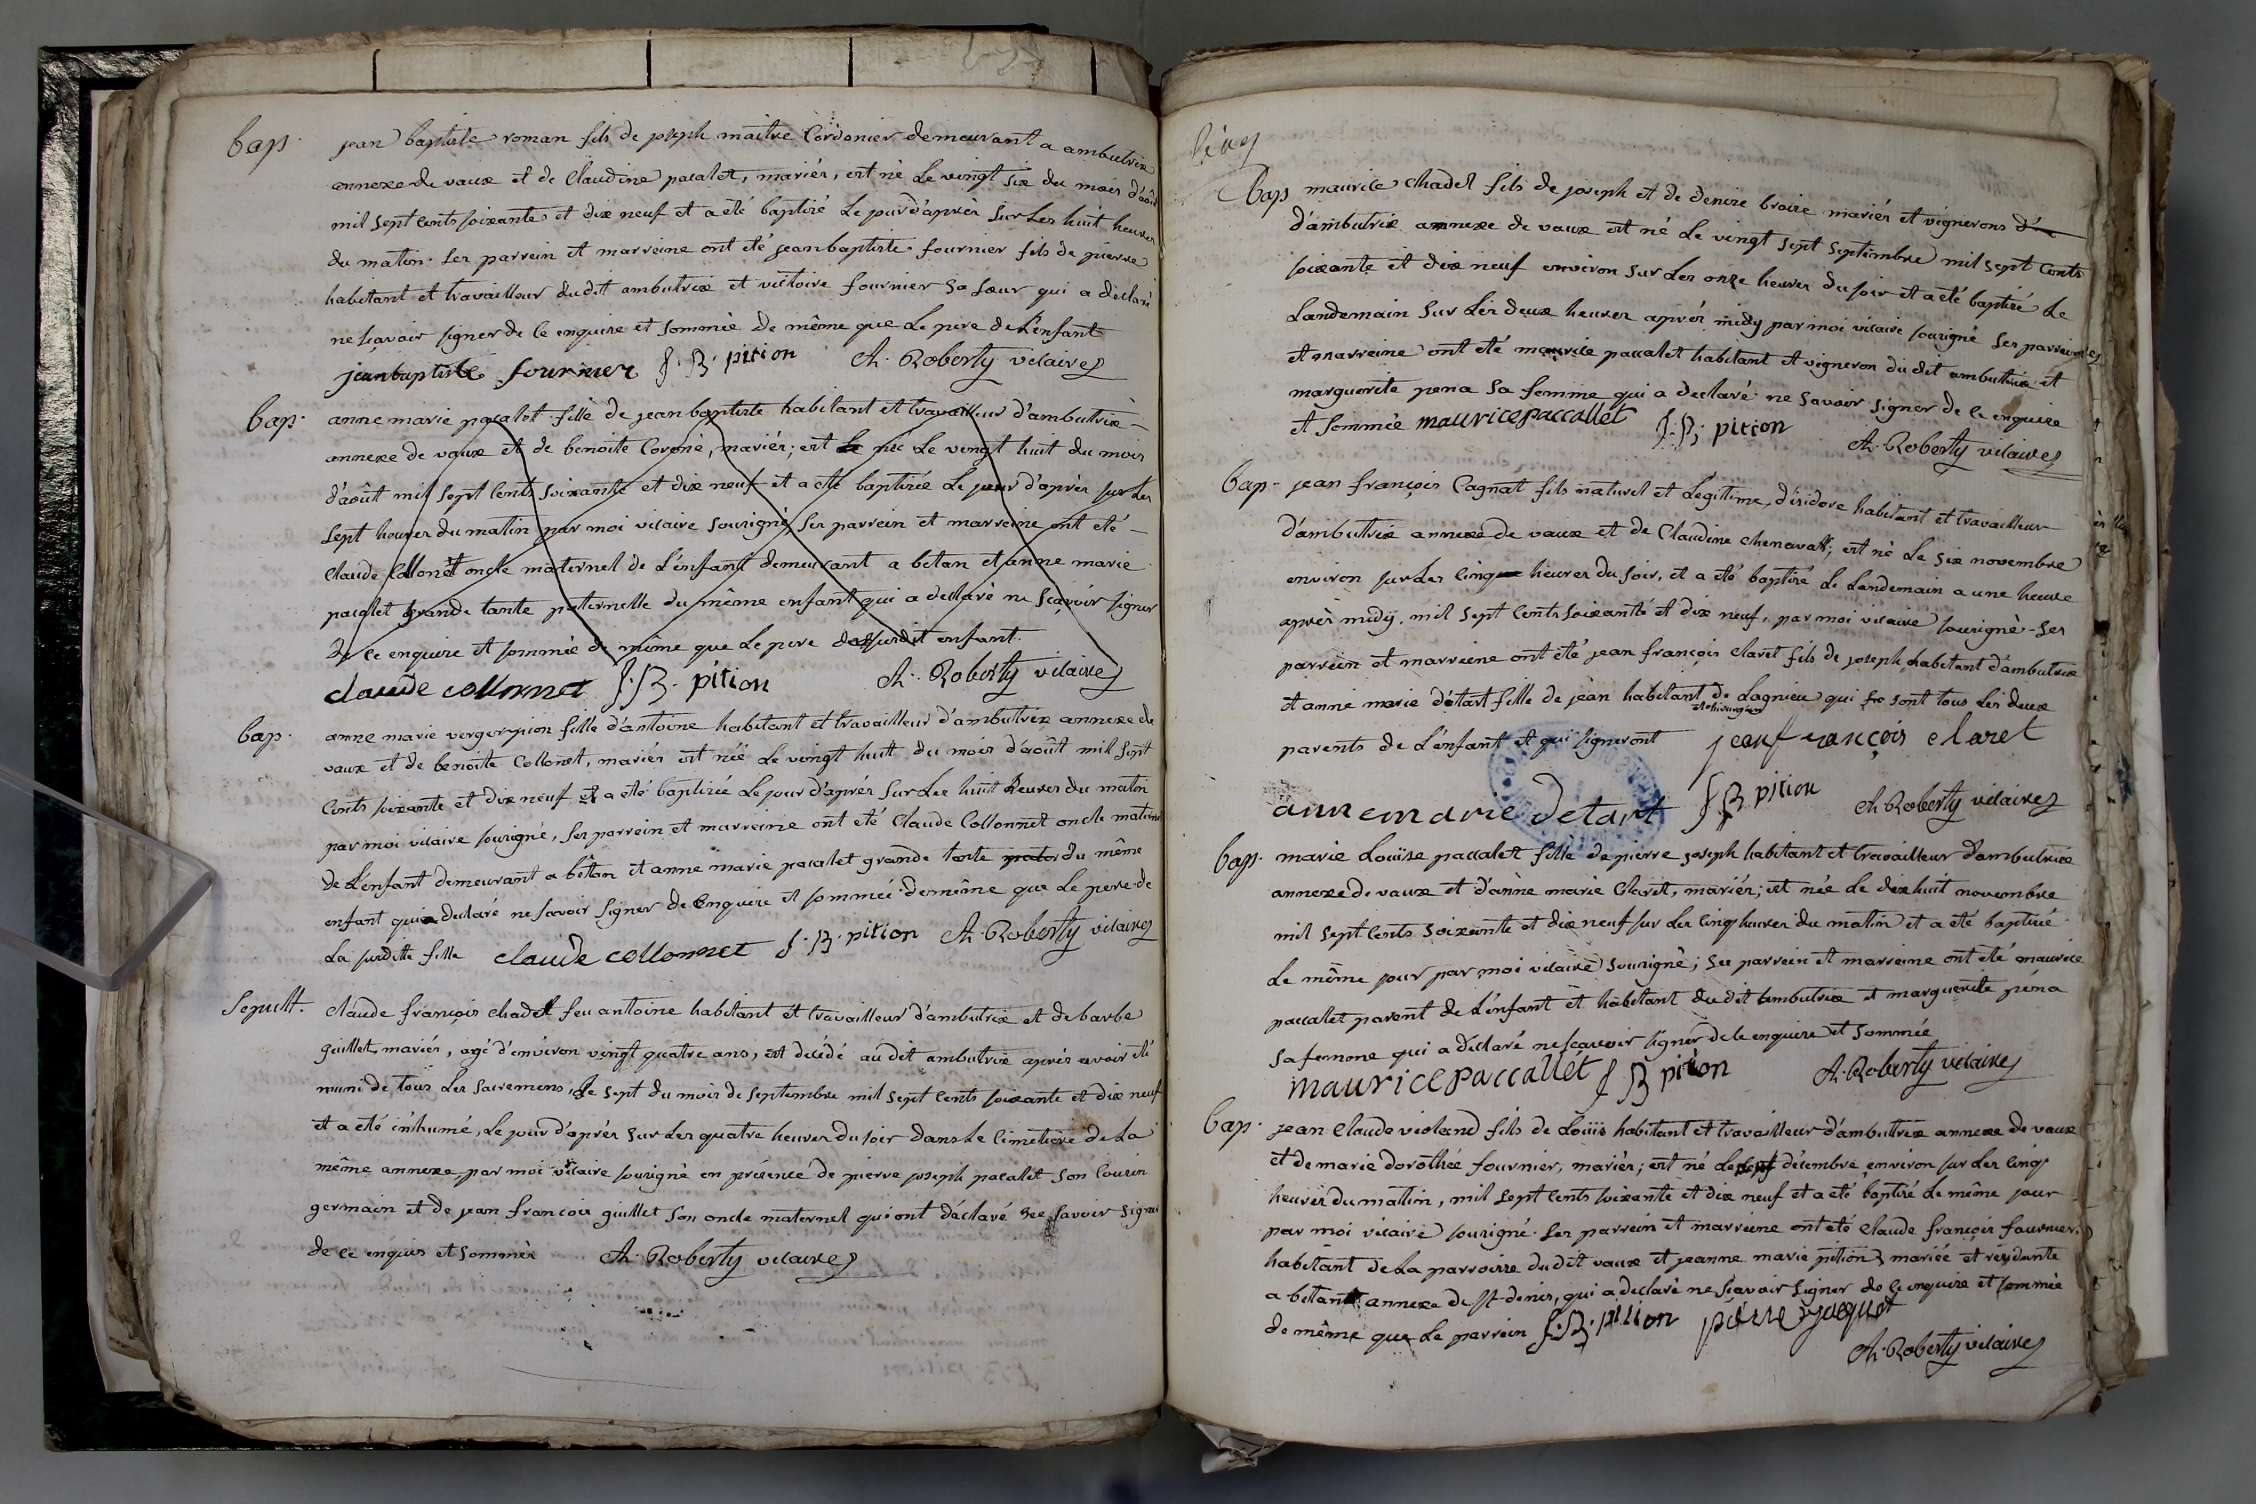 bap. jean baptiste roman fils de joseph maitre Cordonier demeurant a ambutrix
annexe de vaux et de Claudine pacalet, mariés, est né Le vingt six du mois d'août
mil sept cents soixante et dix neuf et a été baptizé Le jour d'après sur Les huit heures
du matin. Ses parrein et marreine ont été jean baptiste fournier fils de pierre
habitant et travailleur dudit ambutrix et victoire fournier sa sœur qui a déclaré
ne sçavoir signer de ce enquise et sommée de même que Le pere de L'enfant
jean baptiste fournier J. B. pition Ch. Roberty vicaire
bap. anne marie pacalet fille de jean baptiste habitant et travailleur d'ambutrix
annexe de vaux et de benoite Coroné, mariés; est née Le vingt huit du mois
d'août mil sept Cents soixante et dix neuf et a été baptizée Le jour d'après sur Les
sept heures du matin par moi vicaire sousigné, ses parrein et marreine ont été
Claude Collonet oncle maternel de L'enfant demeurant a betan et anne marie
pacalet grande tante paternelle du même enfant qui a déclaré ne sçavoir signer
de ce enquise et sommée de même que Le pere dudit enfant.
claude collonnet J. B. pition Ch. Roberty vicaire
bap. anne marie vergerpion fille d'antoine habitant et travailleur d'ambutrix annexe de
vaux et de benoite Collonet, mariés est née Le vingt huit du mois d'août mil sept
Cents soixante et dix neuf et a été baptizée Le jour d'après sur Les huit heures du matin
par moi vicaire sousigné, Ses parrein et marreine ont été Claude Collonnet oncle maternel
de L'enfant demeurant a bêtan et anne marie pacalet grande tante du même
enfant qui a declaré ne sçavoir signer de ce enquise et sommée de même que Le pere de
La susditte fille claude collonnet J. B. pition Ch. Roberty vicaire
Sepult. Claude françois chadel feu antoine habitant et travailleur d'ambutrix et de barbe
guillet mariés, agé d'environ vingt quatre ans, est décédé audit ambutrix après avoir été
muni de tous Les sacremens, Le sept du mois de septembre mil sept Cents soixante et dix neuf
et a été inhumé, Le jour d'après sur Les quatre heures du soir dans Le cimetiere de La
même annexe, par moi vicaire sousigné en présence de pierre joseph pacallet son Cousin
germain et de jean francois guillet son oncle maternel qui ont déclaré ne savoir signer
de ce enquis et sommés Ch. Roberty vicaire
bap maurice chadel fils de joseph et de denise broise mariés et vignerons
d'ambutrix annexe de vaux est né Le vingt sept septembre mil sept Cents
soixante et dix neuf environ sur Les onze heures du soir et a été baptisé Le
Landemain sur Les deux heures après midy par moi vicaire sousigné Ses parrein
et marreine ont été maurice paccalet habitant et vigneron dudit ambutrix et
marguerite pena sa femme qui a declaré ne savoir signer de ce enquise
et sommée maurice paccallet J. B. pition
Ch. Roberty vicaire
bap. jean françois Cagnat fils naturel et Légitime, d'isidore habitant et travailleur
d'ambutrix annexe de vaux et de Claudine chenavatt; est né Le six novembre
environ sur Les Cinq heures du soir, et a été baptisé Le Landemain a une heure
après midy, mil sept Cents soixante et dix neuf, par moi vicaire sousigné. Ses
parrein et marreine ont été jean françois Claret fils de joseph habitant d'ambutrix
et anne marie détart fille de jean habitant de Lagnieu qui sont tous Les deux
et chirurgien
parents de L'enfant et qui signeront jean françois claret
anne marie detart J B pition Ch. Roberty vicaire
bap. marie Louise paccalet fille de pierre joseph habitant et travailleur d'ambutrix
annexe de vaux et d'anne marie Claret, mariés; est née Le dix huit novembre
mil sept Cents soixante et dix neuf sur Les Cinq heures du matin et a été baptisée
Le même jour par moi vicaire sousigné; Ses parrein et marreine ont été maurice
paccallet parent de L'enfant et habitant dudit ambutrix et marguerite péna
sa femme qui a déclaré ne sçavoir signer de ce enquise et sommée
maurice paccallet J B pition Ch. Roberty vicaire
bap. jean Claude violand fils de Loüis habitant et travailleur d'ambutrix annexe de vaux
et de marie dorothée fournier, mariés; est né Le décembre environ sur Les Cinq
heures du mattin, mil sept Cents soixante et dix neuf et a été baptisé Le même jour
par moi vicaire sousigné. Ses parrein et marreine ont été Claude françois fournier
habitant de La parroisse dudit vaux et jeanne marie pition mariée et residante
a betan annexe de St denis, qui a declaré ne sçavoir signer de ce enquise et sommée
de même que Le parrein J. B. pition pierre jacquet
Ch. Roberty vicaire